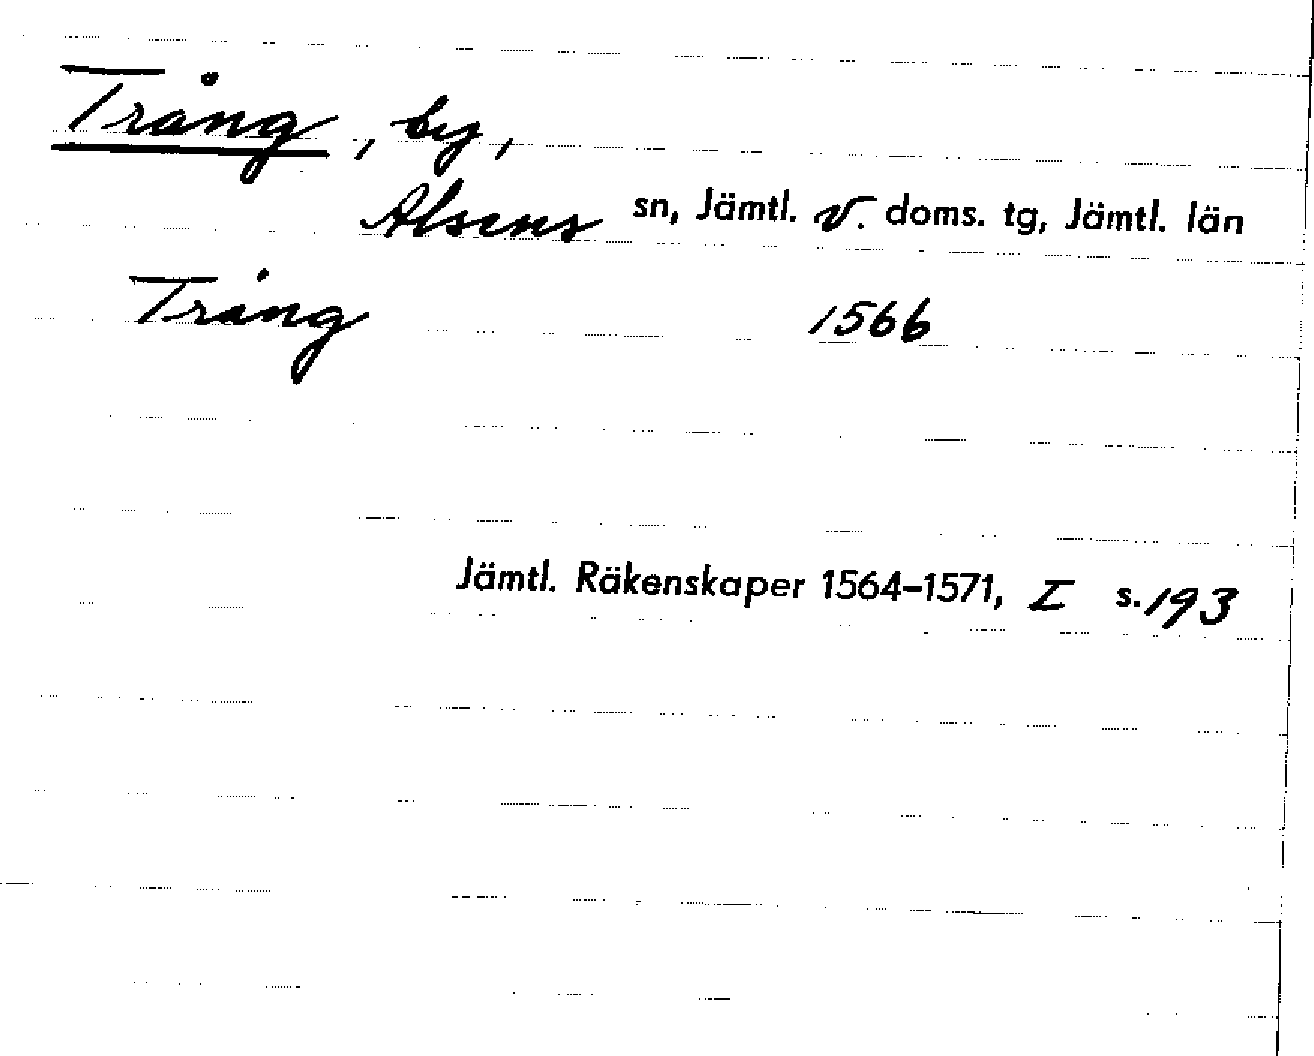 Trång, by,
Alsens sn, Jämtl. v. doms. tg, Jämtl. län
Trång 1566
Jämtl. Räkenskaper 1564–1571, I s. 193